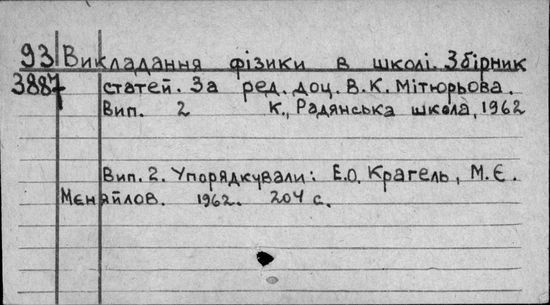 93 Викладання фізики в школі. Збірник
3887 статей. За ред. доц. В.К. Мітюрьова.
Вип. 2 К., Радянська школа, 1962
Вип. 2. Упорядкували: Е.О. Крагель, М.Є.
Мєняйлов. 1962. 204 с.